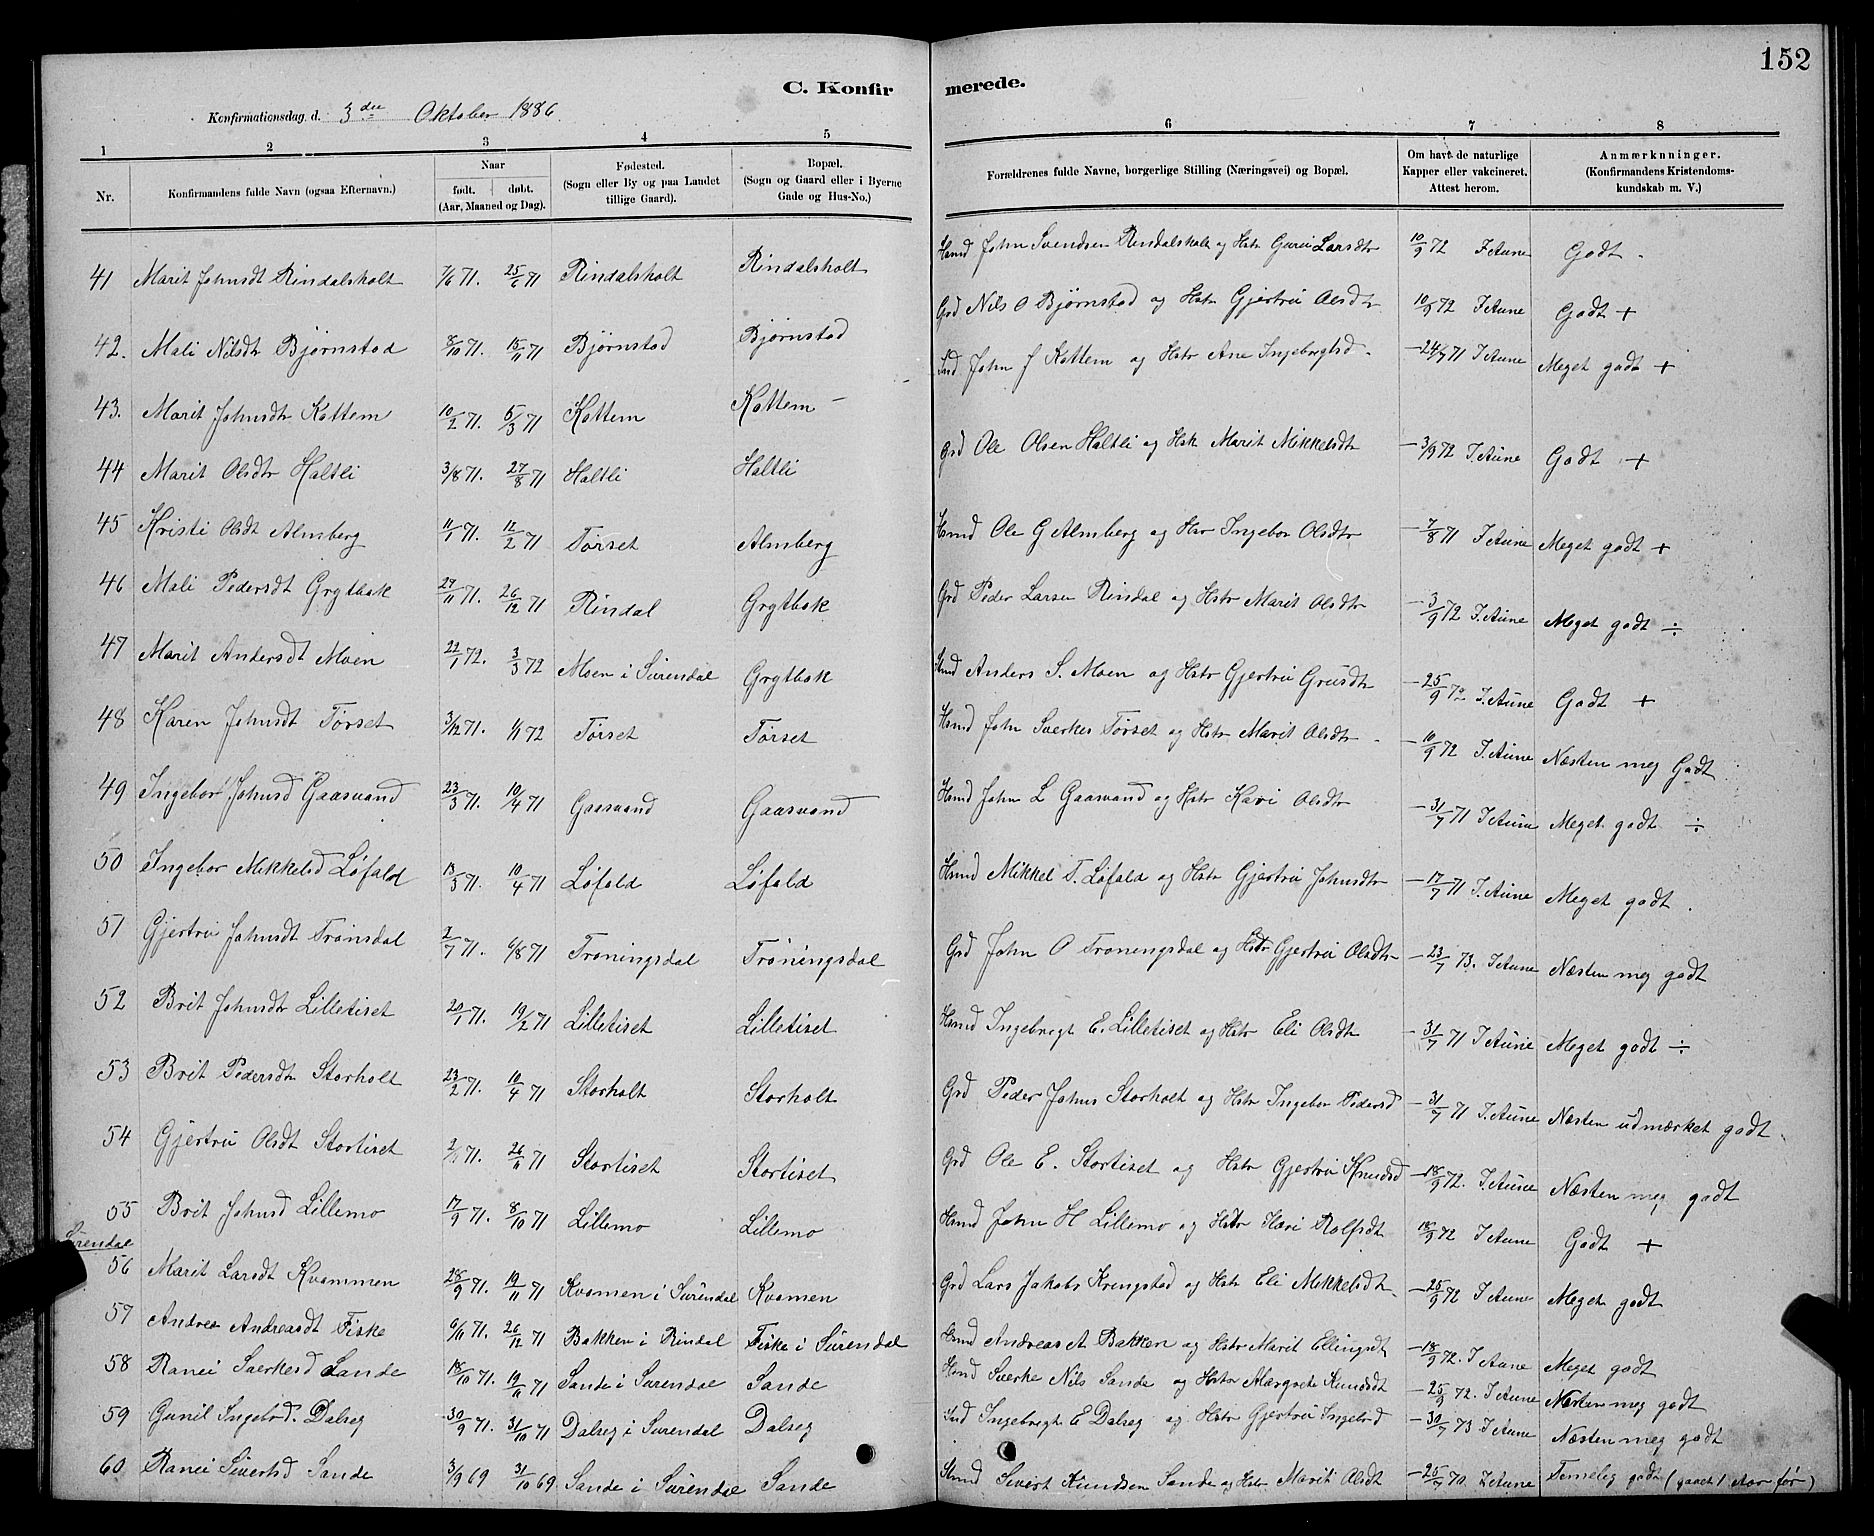 152
C. Konfirmerede.
Konfirmationsdag d. 3die Oktober 1886.
1 2 3 4 5 6 7 8
Nr. Konfirmandens fulde Navn (ogsaa Efternavn.) Naar født. døbt. (Aar, Maaned og Dag). Fødested. (Sogn eller By og paa Landet tillige Gaard). Bopæl. (Sogn og Gaard eller i Byerne Gade og Hus-No.) Forældrenes fulde Navne, borgerlige Stilling (Næringsvei) og Bopæl. Om havt de naturlige Kopper eller vakcineret. Attest herom. Anmærkninger. (Konfirmandens Kristendomskundskab m. V.)
41 Marit Johnsdt Rindalsholt 7/6 71. 25/6 71 Rindalsholt Rindalsholt Hsmd John Svendsen Rindalsholt og Hstr Guru Larsdtr 10/9 72 I Aune Godt -
42. Mali Nilsdtr Bjørnstad 8/10 71. 15/11 71 Bjørnstad Bjørnstad Grd Nils O Bjørnstad og Hstr Gjertru Olsdtr 10/9 72 I Aune Godt +
43. Marit Johnsdtr Kattem 10/2 71. 5/3 71 Kattem Kattem - Ind. John J Kattem og Hstr Ane Ingebrigtsd - 24/7 71 I Aune Meget godt +
44 Marit Olsdtr Haltli 3/8 71. 27/8 71 Haltli Haltli Grd Ole Olsen Haltli og Hstr Marit Mikkelsdtr - 3/9 72 I Aune Godt +
45 Kristi Olsdt Almberg 11/1 71. 12/2 71 Tørset Almberg Hsmd Ole G Almberg og Hstr Ingebor Olsdtr - 7/8 71 I Aune Meget godt +
46 Mali Pedersdt Grytbak 27/11 71. 26/12 71 Rindal Grytbak Grd Peder Larsen Rindal og Hstr Marit Olsdtr - 3/9 72 I Aune Meget godt ÷
47 Marit Andersdt Moen 22/1 72. 3/3 72 Moen i Surendal Grytbak Hsmd Anders S. Moen og Hstr Gjertru Grusdtr - 25/9 72 I. Aune Godt +
48 Karen Johnsdt Tørset 3/12 71. 1/1 72 Tørset Tørset Hsmd John Sverkes Tørset og Hstr Marit Olsdtr - 10/9 72 I. Aune Næsten meg Godt
49 Ingebor Johnsd Gaasvand 23/3 71. 10/4 71 Gaasvand Gaasvand Hsmd John L Gaasvand og Hstr Kari Olsdtr - 31/7 71 I Aune Meget godt ÷
50 Ingebor Mikkelsd Løfald 13/3 71. 10/4 71 Løfald Løfald Hsmd Mikkel T. Løfald og Hstr Gjertru Johnsdtr - 17/7 71 I. Aune Meget godt .
51 Gjertru Johnsdt Trønsdal 2/7 71. 6/8 71 Trøningsdal Trøningsdal Grd John O Trøningsdal og Hstr Gjertru Olsdtr - 23/7 73. I Aune Næsten meg godt
52 Brit Johnsdtr Lilletiset 20/1 71. 19/2 71 Lilletiset Lilletiset Hsmd Ingebrigt E. Lilletiset og Hstr Eli Olsdt - 31/7 71 I Aune Meget godt ÷
53 Brit Pedersdtr Storholt 23/2 71. 10/4 71 Storholt Storholt Grd Peder Johns Storholt og Hstr Ingebor Pedersd - 31/7 71 I. Aune Næsten udmærket godt.
54 Gjertru Olsdt Stortiset 71. 71 Stortiset Stortiset Grd Ole E. Stortiset og Hstr Gjertru Knudsd - 18/9 72. I Aune Næsten meg godt
55 Brit Johnsd Lillemo 17/9 71. 8/10 71 Lillemo Lillemo Hsmd John H Lillemo og Hstr Kari Rolfsdt 18/9 72 I Aune Godt +
Surendal
56 Marit Larsdt Kvammen 28/9 71. 19/11 71 Kvamen i Surendal Kvamen Grd Lars Jakobs Krengstad og Hstr Eli Mikkelsdt - 25/9 72 I Aune Meget godt
57 Andrea Andreasdt Fiske 6/11 71. 26/12 71 Bakken i Rindal Fiske i Surendal Hsmd Andreas A Bakken og Hstr Marit Ellingsdt - 18/9 72. I Aune Meget godt
58 Ranei Sverkesd Sande 18/10 71. 19/11 71 Sande i Surendal Sande Hsmd Sverke Nils Sande og Hstr Margrete Knudsdt - 25/9 72. I Aune Næsten meg godt
59 Gunil Ingebd. Dalseg 30/9 71. 31/10 71 Dalseg i Surendal Dalseg Ind Ingebrigt E Dalseg og Hstr Gjertru Ingebd - 30/7 73 I Aune Næsten meg godt
60 Ranei Sivertsd Sande 3/9 69 31/10 69 Sande i Surendal Sande Hsmd Sivert Knudsen Sande og Hstr Marit Olsdt - 25/7 70 I Aune Temelig godt (gaaet 1 Aar før)